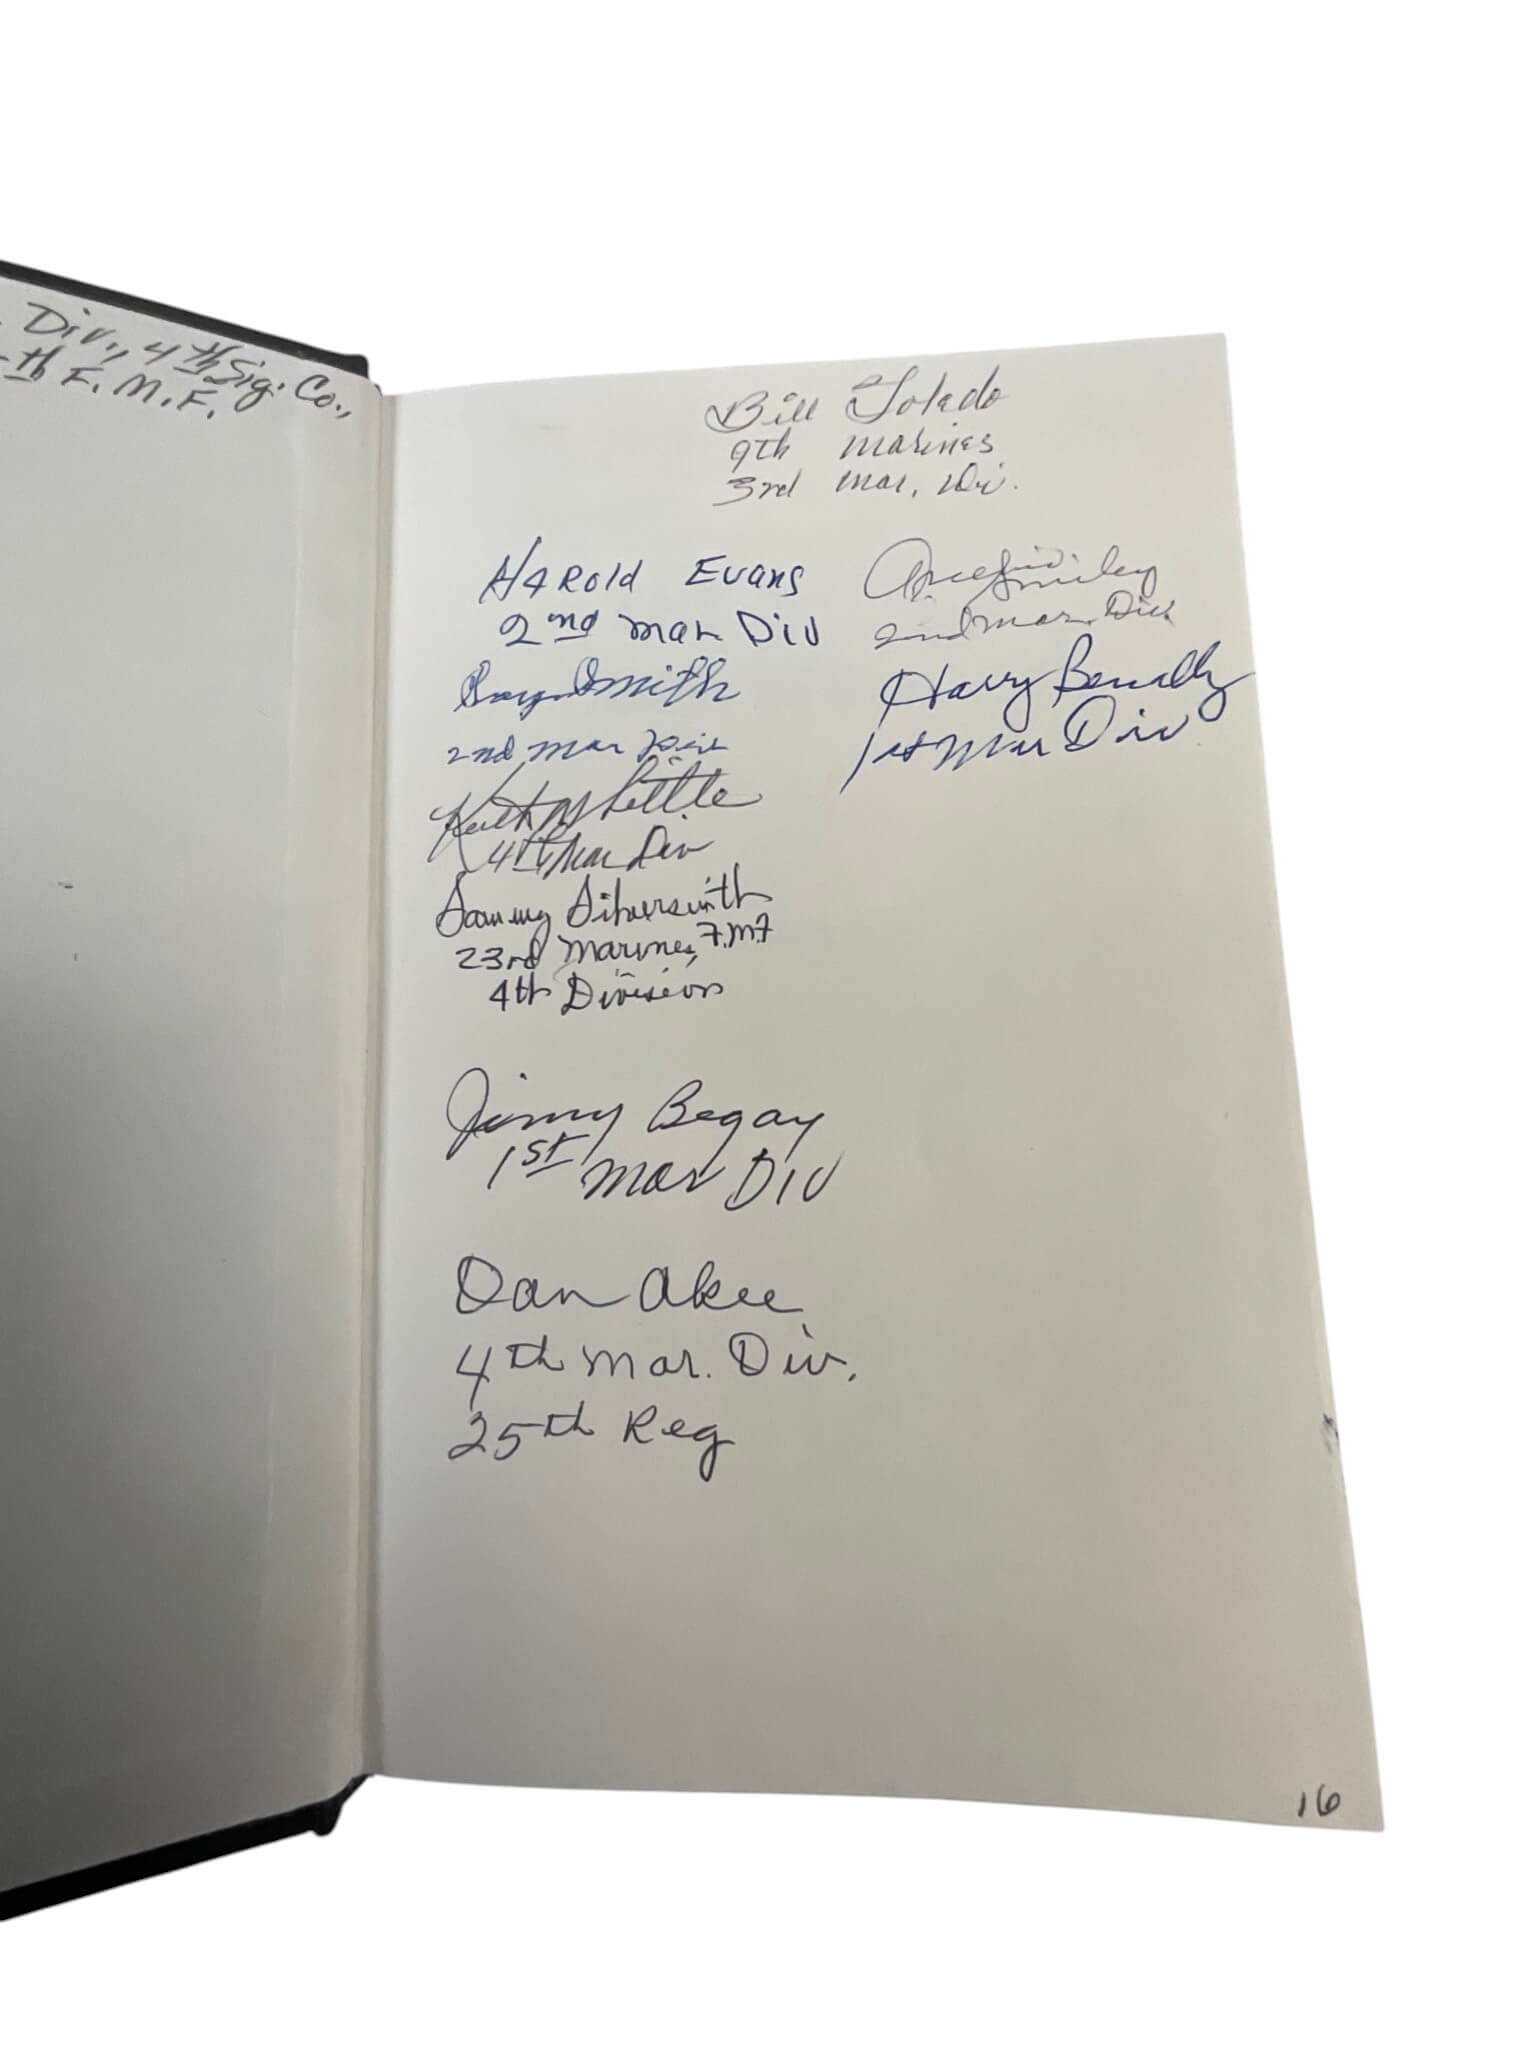 Div., 4th Sig. Co.,
th F.M.F.
Bill Toledo
9th Marines
3rd Mar. Div.
Harold Evans
2nd Mar Div
Smith
2nd Mar Div
Keith M Little
4th Mar Div
Sammy Silversmith
23rd Marines, F.M.F
4th Division
Jimmy Begay
1st Mar Div
Dan Akee
4th Mar. Div.
25th Reg
Smiley
2nd Mar. Div.
Harry Benally
1st Mar Div
16